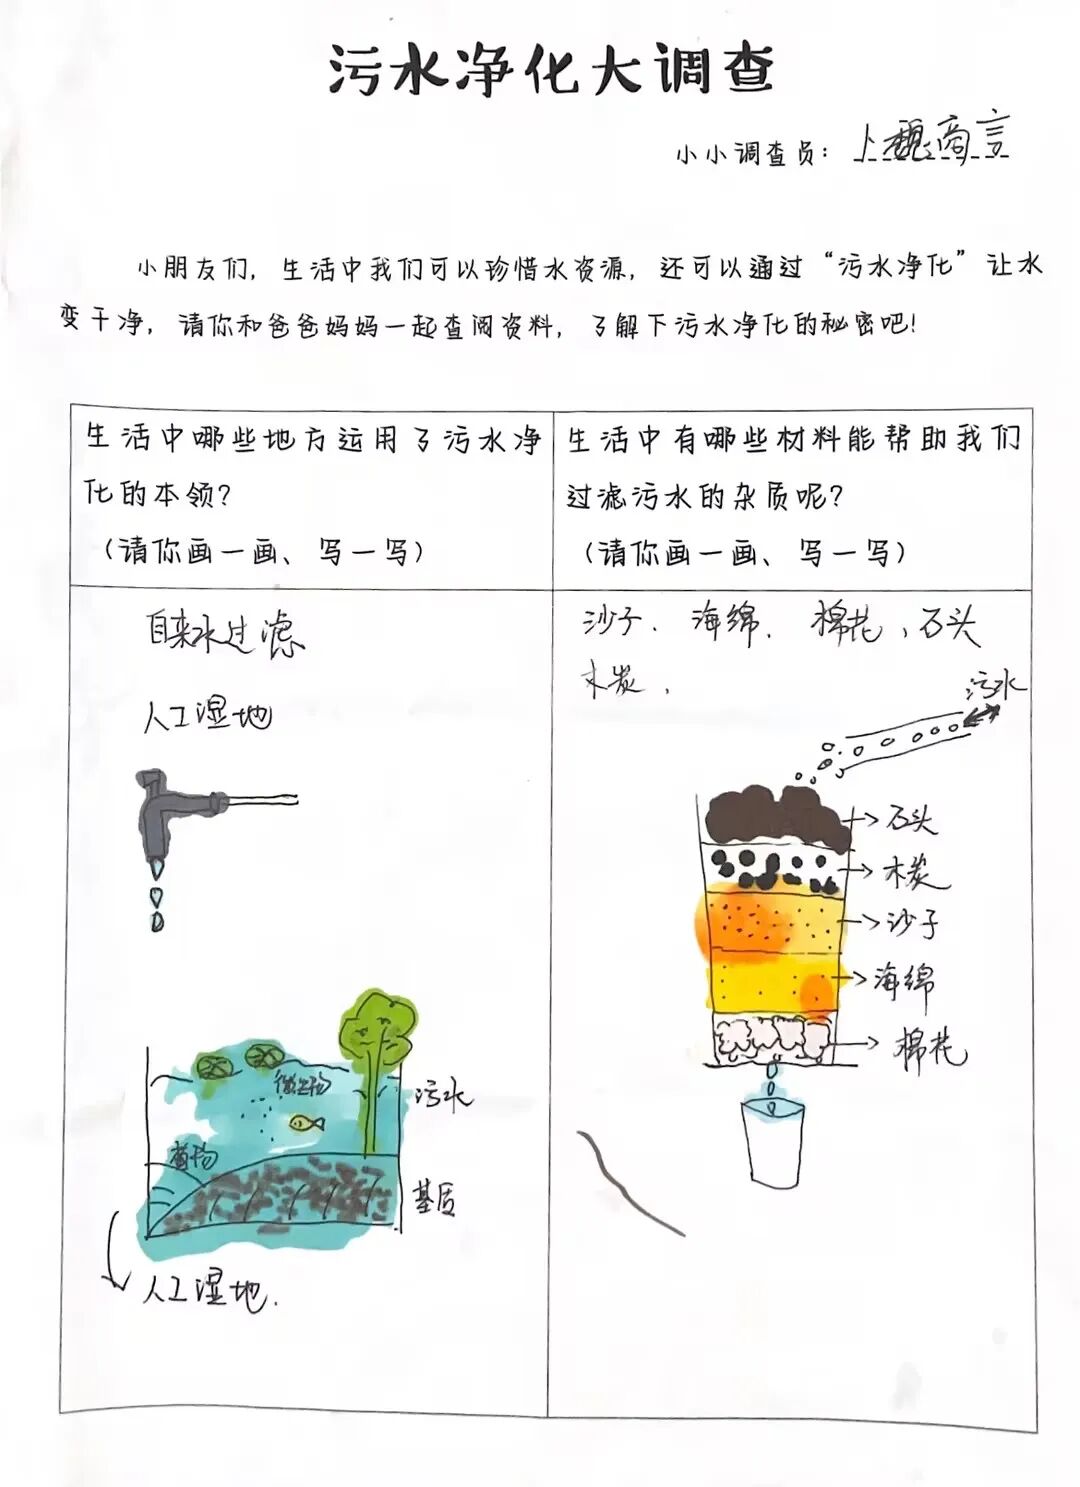 污水净化大调查
小小调查员：卜魏商言
小朋友们，生活中我们可以珍惜水资源，还可以通过“污水净化”让水
变干净，请你和爸爸妈妈一起查阅资料，了解下污水净化的秘密吧！
生活中哪些地方运用了污水净
化的本领？
（请你画一画、写一写）
生活中有哪些材料能帮助我们
过滤污水的杂质呢？
（请你画一画、写一写）
自来水过滤
人工湿地
微生物
污水
植物
基质
人工湿地.
沙子、海绵、棉花、石头
木炭、
污水
石头
木炭
沙子
海绵
棉花